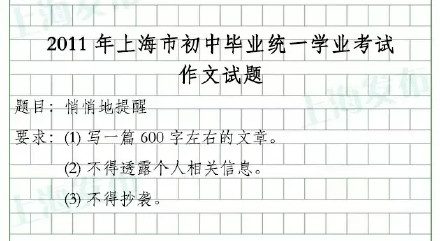 2011 年上海市初中毕业统一学业考试
作文试题
题目：悄悄地提醒
要求：(1) 写一篇 600 字左右的文章。
(2) 不得透露个人相关信息。
(3) 不得抄袭。
上海发布